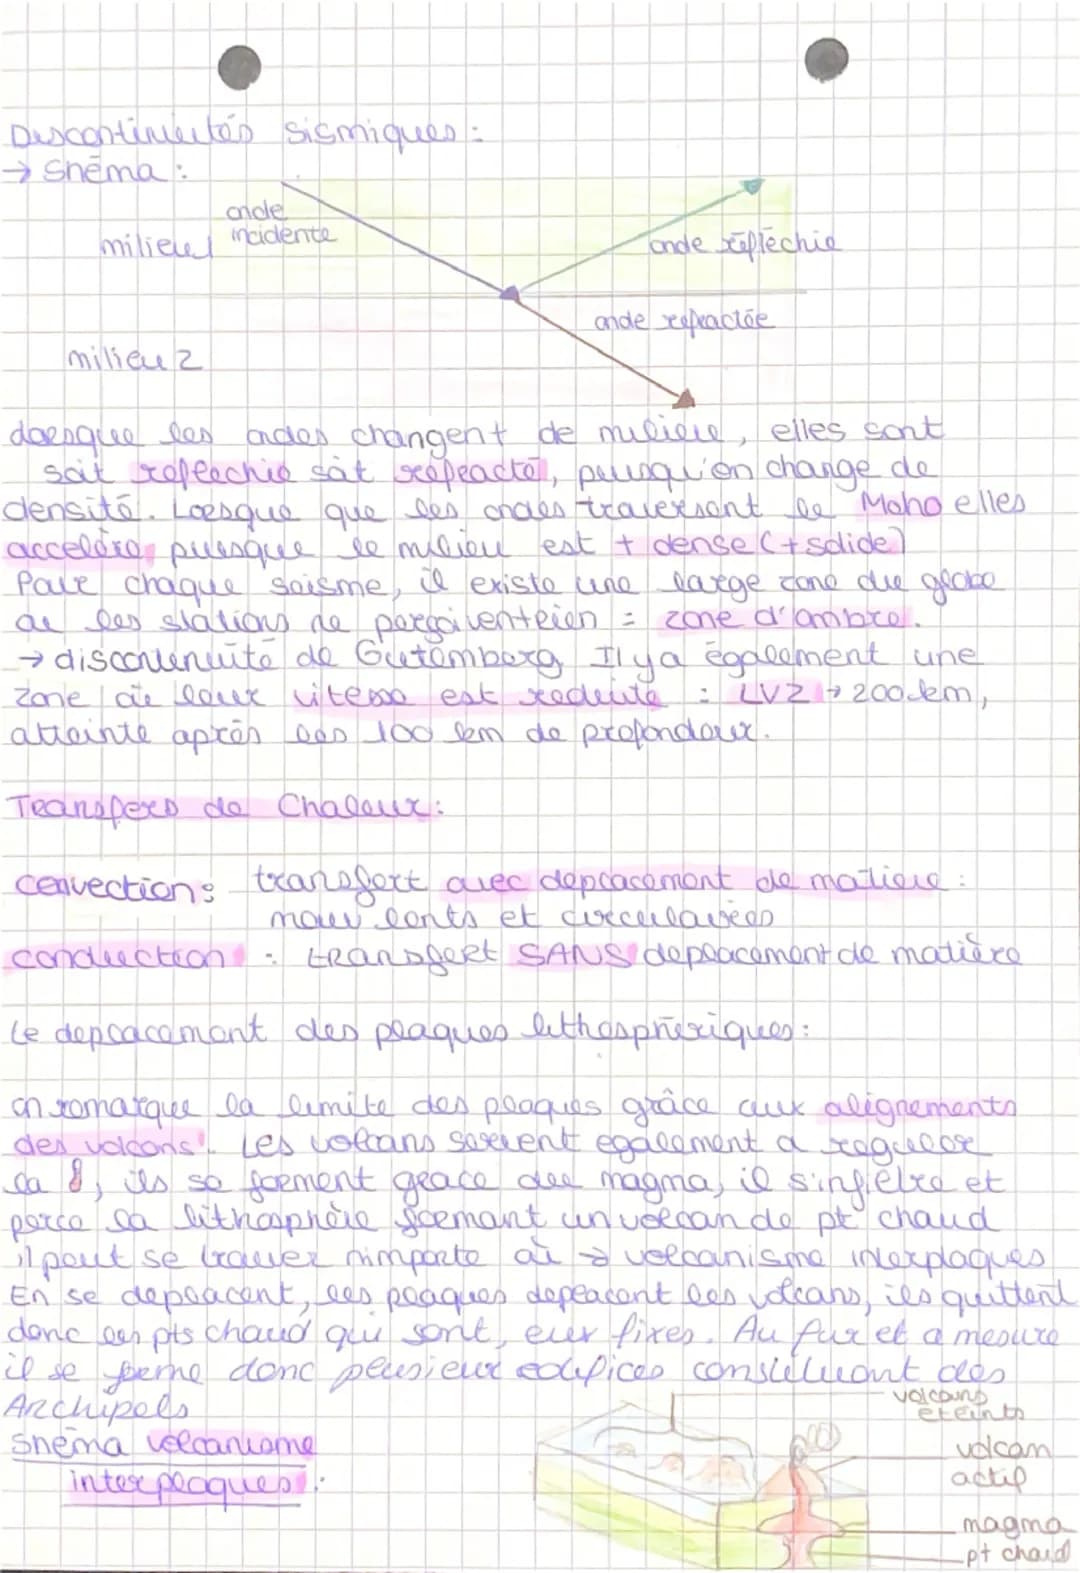 Discontinuités sismiques :
→ Shéma :
onde
incidente
milieu 1
onde réfléchie
onde refractée
milieu 2
Lorsque les ondes changent de milieu, elles sont
soit reflechie soit réfracté, puisqu'on change de
densité. Lorsque que les ondes traversent le Moho elles
accelère puisque le milieu est + dense (+ solide)
Pour chaque séisme, il existe une large zone du globe
ou les stations ne perçoivent rien = zone d'ombre.
→ discontinuité de Gutemberg Il y a également une
zone où leur vitesse est reduite : LVZ → 200km,
atteinte après les 100 km de profondeur.
Transfers de Chaleur :
convection : transfert avec deplacement de matière :
mouv lents et circulaires
conduction : transfert SANS deplacement de matière
Le deplacement des plaques lithosphériques :
on remarque la limite des plaques grâce aux alignements
des volcans. Les volcans servent egalement a reguler
la , ils se forment grace au magma, il s'infiltre et
perce la lithosphère formant un volcan de pt chaud
il peut se trouver nimporte où → volcanisme interplaques
En se deplacent, les plaques deplacent les volcans, ils quittent
donc les pts chaud qui sont, eux fixes. Au fur et a mesure
il se forme donc plusieur edifices constituant des
Archipels
Shéma volcanisme
interplaques :
volcans
éteints
volcan
actif
magma
pt chaud